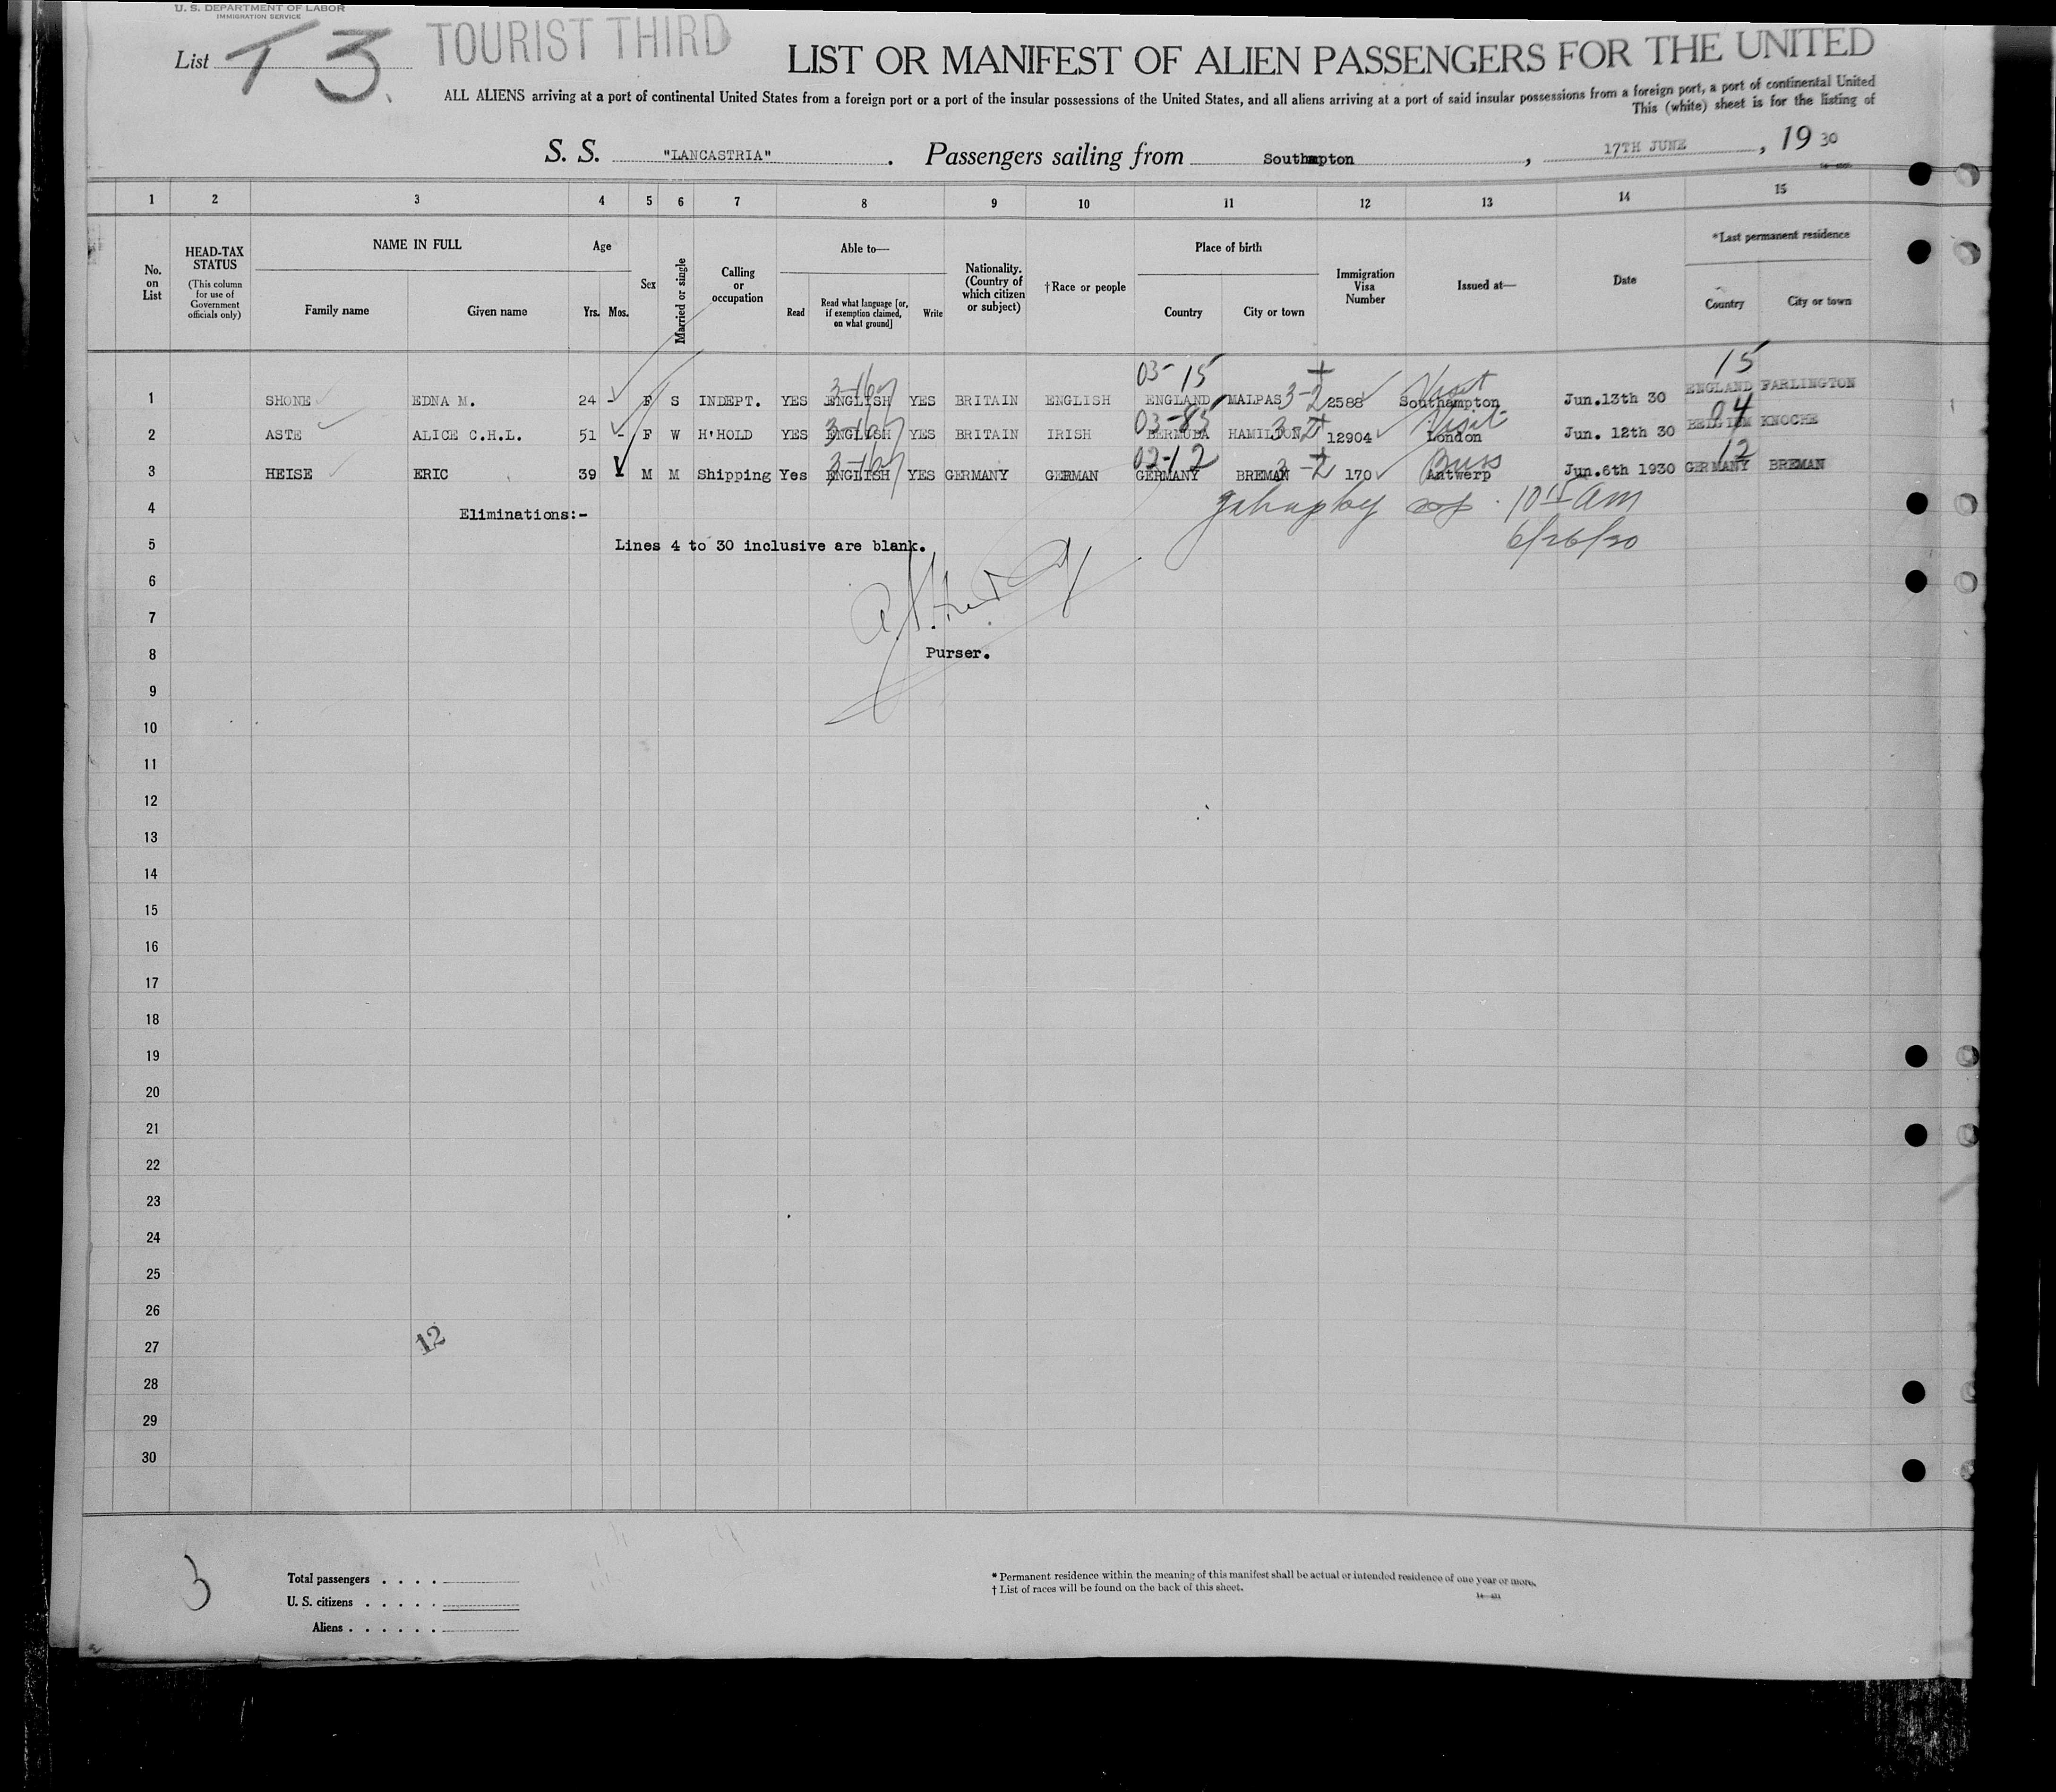 U. S. DEPARTMENT OF LABOR
IMMIGRATION SERVICE
List T 3. TOURIST THIRD
LIST OR MANIFEST OF ALIEN PASSENGERS FOR THE UNITED
ALL ALIENS arriving at a port of continental United States from a foreign port or a port of the insular possessions of the United States, and all aliens arriving at a port of said insular possessions from a foreign port, a port of continental United
This (white) sheet is for the listing of
S. S. "LANCASTRIA". Passengers sailing from Southampton, 17TH JUNE, 19 30
1 2 3 4 5 6 7 8 9 10 11 12 13 14 15
No. on List
HEAD-TAX STATUS
(This column for use of Government officials only)
NAME IN FULL
Family name Given name
Age
Yrs. Mos.
Sex
Married or single
Calling or occupation
Able to—
Read
Read what language [or, if exemption claimed, on what ground]
Write
Nationality. (Country of which citizen or subject)
†Race or people
Place of birth
Country City or town
Immigration Visa Number
Issued at—
Date
*Last permanent residence
Country City or town
03-15 15
3-2 Visit
1 SHONE EDNA M. 24 - F S INDEPT. YES ENGLISH YES BRITAIN ENGLISH ENGLAND MALPAS 2588 Southampton Jun.13th 30 ENGLAND FARLINGTON
03-85 Visit 04
2 ASTE ALICE C.H.L. 51 - F W H'HOLD YES ENGLISH YES BRITAIN IRISH BERMUDA HAMILTON 12904 London Jun. 12th 30 BELGIUM KNOCHE
03-12 3-2 Buss 12
3 HEISE ERIC 39 - M M Shipping Yes ENGLISH YES GERMANY GERMAN GERMANY BREMAN 170 Antwerp Jun.6th 1930 GERMANY BREMAN
4 Eliminations:- 10 15 am
5 Lines 4 to 30 inclusive are blank. 6/26/30
6
7
8 Purser.
9
10
11
12
13
14
15
16
17
18
19
20
21
22
23
24
25
26
27 12
28
29
30
3
Total passengers . . . .
U. S. citizens . . . . .
Aliens . . . . . .
* Permanent residence within the meaning of this manifest shall be actual or intended residence of one year or more.
† List of races will be found on the back of this sheet.